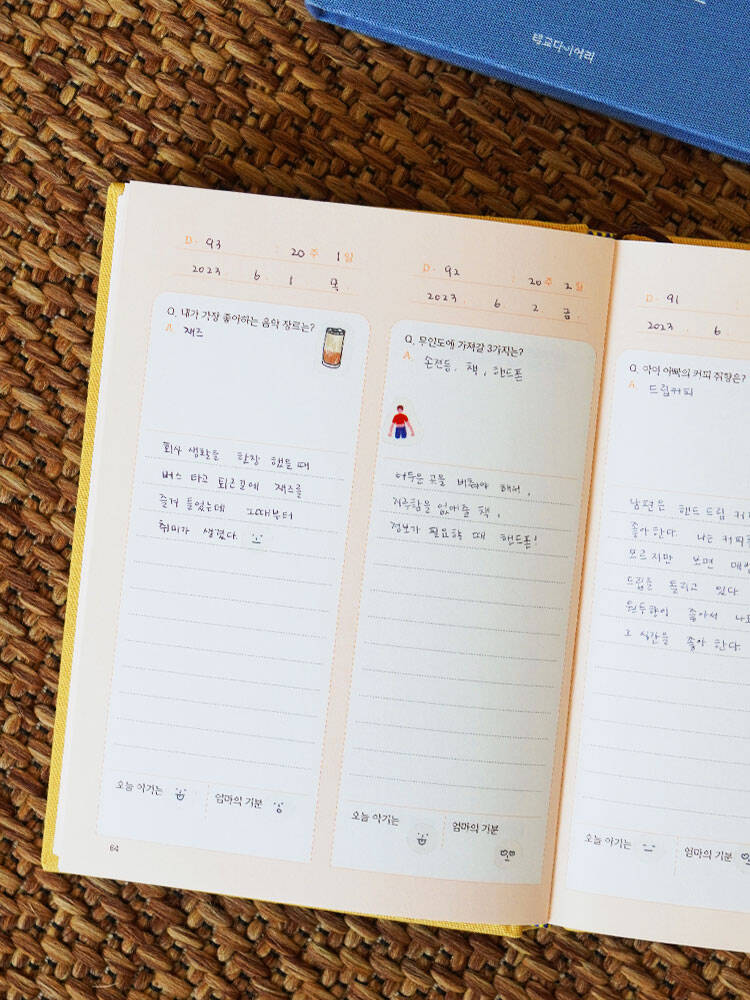 태교다이어리
D. 93 : 20주 1일
2023. 6. 1 목
Q. 내가 가장 좋아하는 음악 장르는?
A. 재즈
회사 생활을 한창 했을 때
버스 타고 퇴근길에 재즈를
즐겨 들었는데 그때부터
취미가 생겼다.
오늘 아기는
엄마의 기분
64
D. 92 : 20주 2일
2023. 6. 2 금.
Q. 무인도에 가져갈 3가지는?
A. 손전등, 책, 핸드폰
어두운 곳을 비춰야 해서,
지루함을 없애줄 책,
정보가 필요할 때 핸드폰!
오늘 아기는
엄마의 기분
D. 91
2023. 6
Q. 엄마 아빠의 커피 취향은?
A. 드립커피
남편은 핸드드립 커
좋아한다. 나는 커피
모르지만 보면 매번
드립을 돌리고 있다
원두향이 좋아서 나도
그 시간을 좋아한다.
오늘 아기는
엄마의 기분